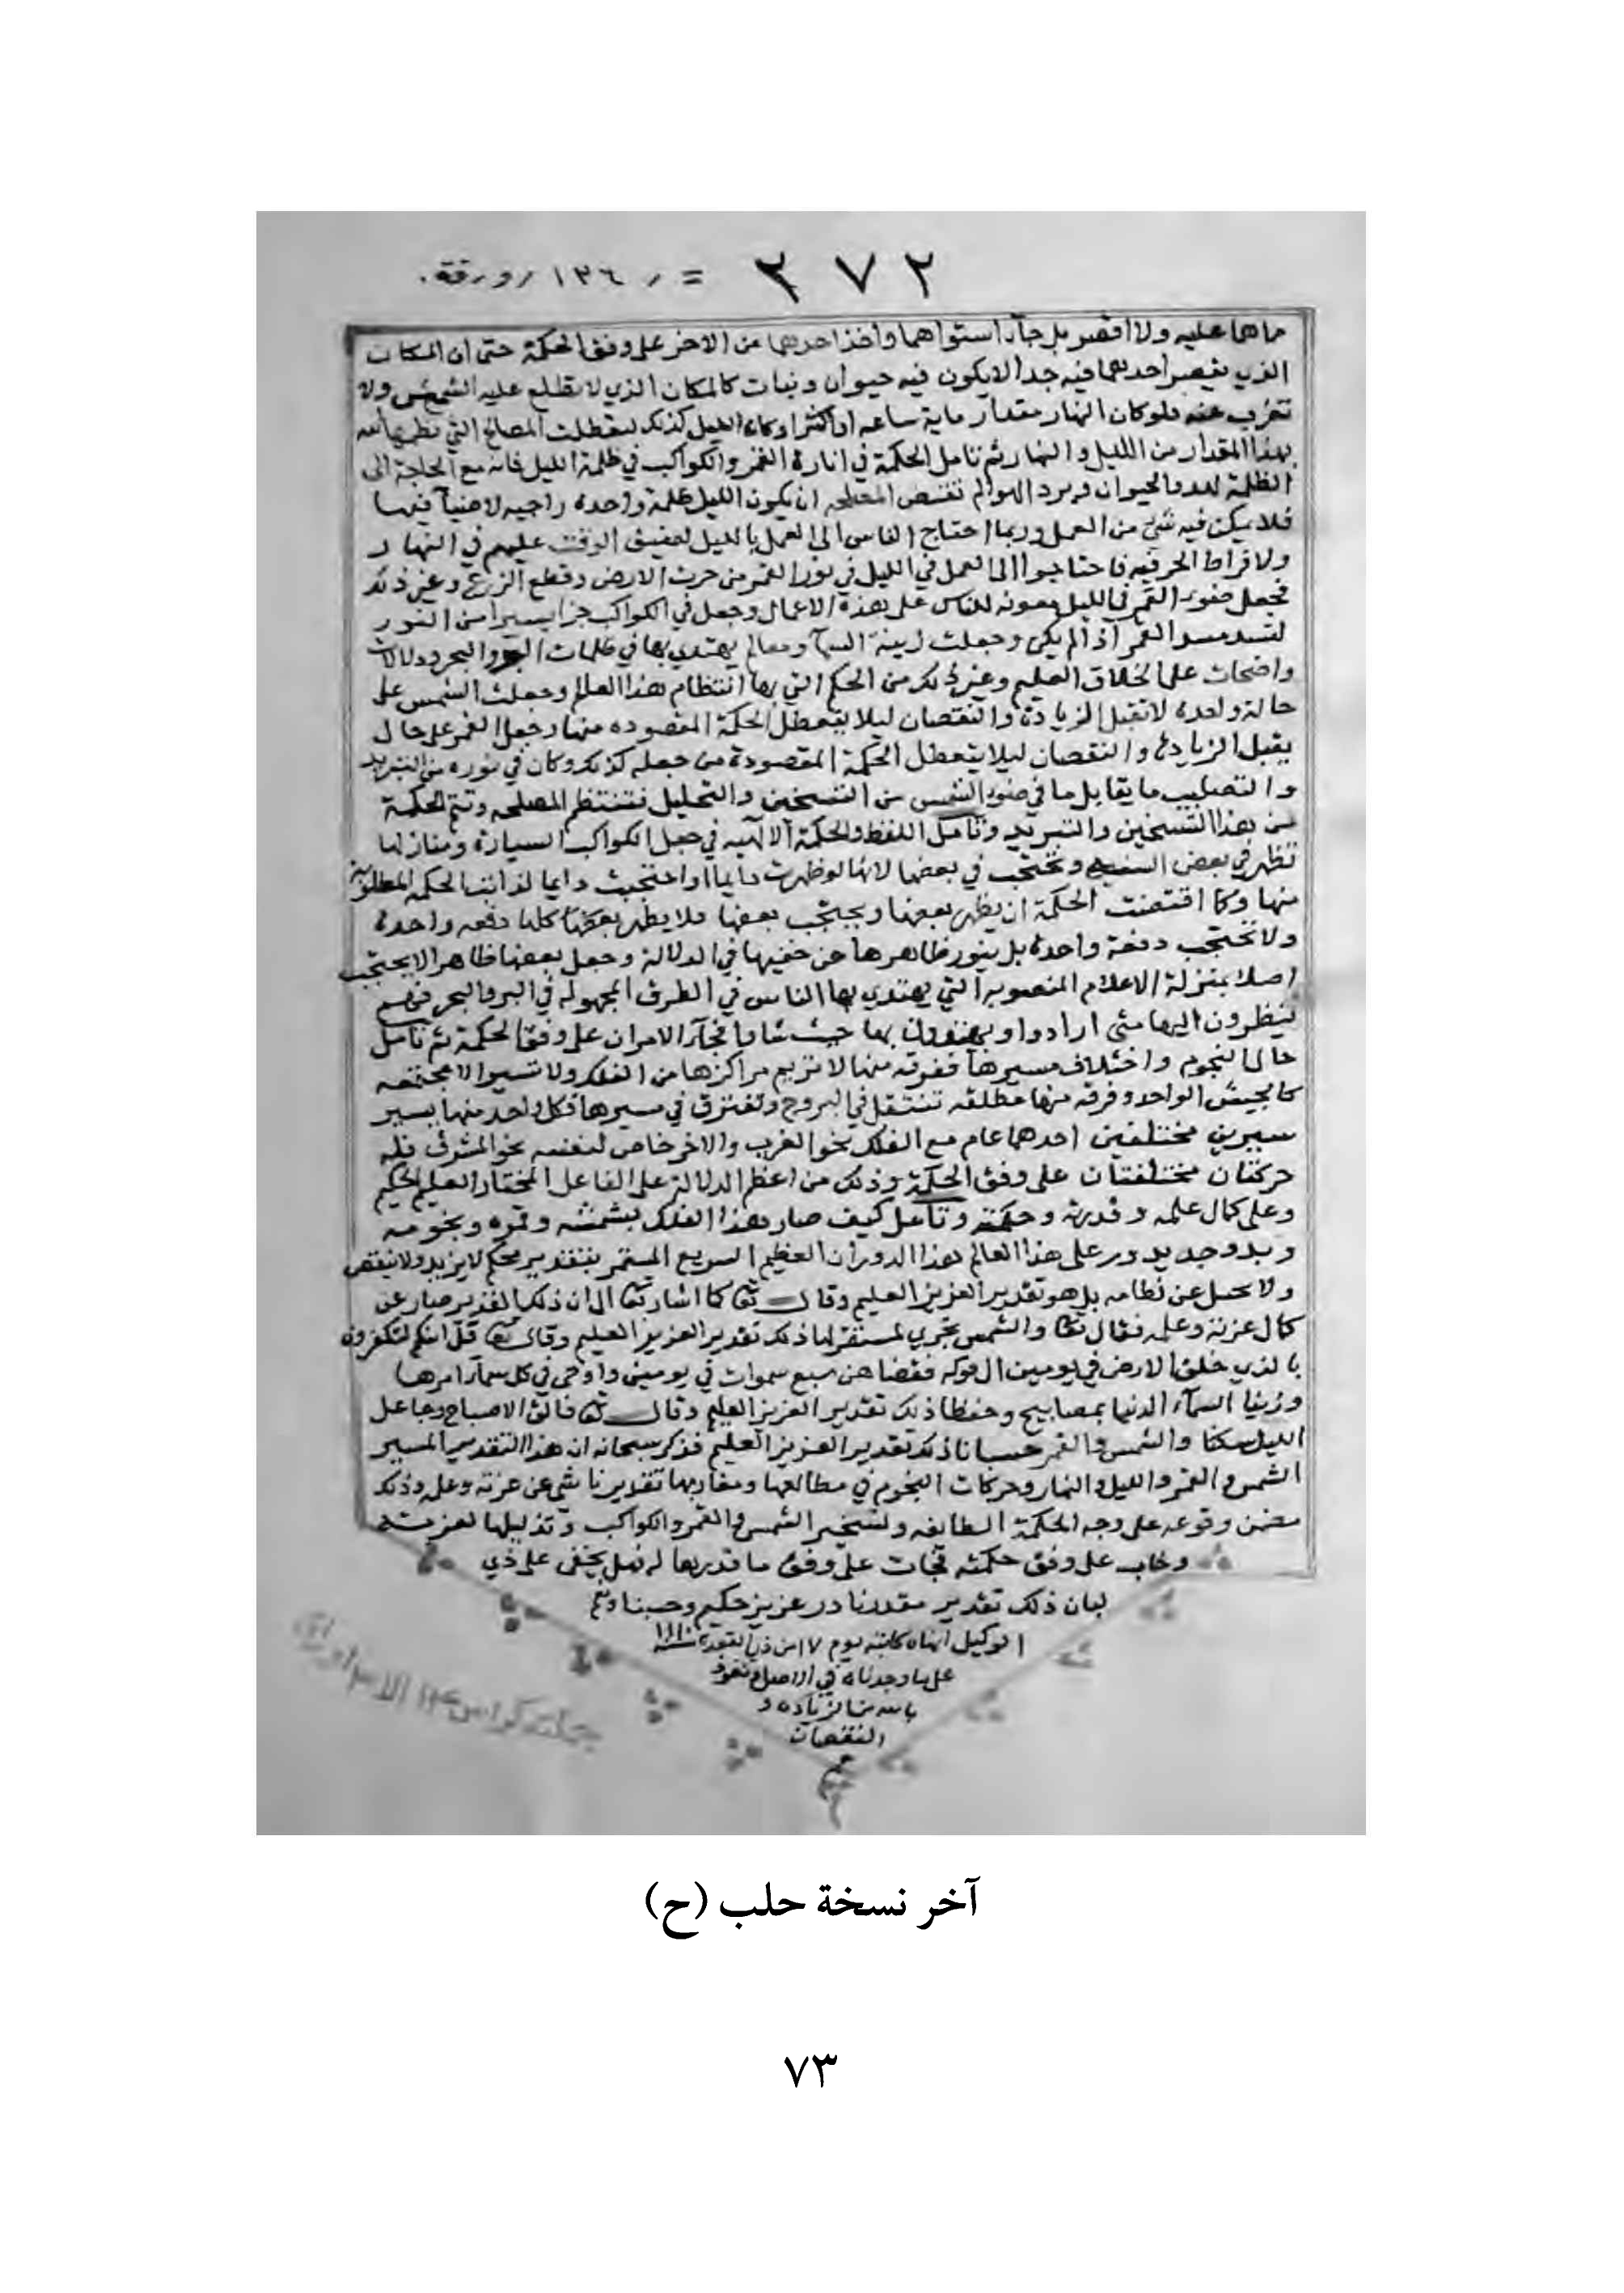 ٢٧٢ = ١٣٦ ورقة.
ما هما عليه ولا اقصر بل جآء استواهما واخذ احدهما من الاخر على وفق الحكمة حتى ان المكان
الذي يقصر احدهما فيه جدا لا يكون فيه حيوان ونبات كالمكان الذي لا تطلع عليه الشمس ولا
تغرب عنه فلو كان النهار مقدار ماية ساعه او اكثر او كان الليل كذلك لتعطلت المصالح التي
بهذا المقدار من الليل والنهار ثم تامل الحكمة في انارة القمر والكواكب في ظلمة الليل فانه مع الحاجة الى
الظلمة الحيوان وبرد الهوا لم تقتض المصلحه ان يكون الليل ظلمة واحده داجيه لا ضيآ فيها
فلا يمكن فيه شي من العمل وربما احتاج الناس الى العمل بالليل لضيق الوقت عليهم في النهار
ولافراط الحر فيه فاحتاجوا الى العمل في الليل في نور القمر من حرث الارض وقطع الزرع وغير ذلك
فجعل ضوء القمر في الليل معونه للناس على هذه الاعمال وجعل في الكواكب جزا يسيرا من النور
لتسد مسد القمر اذا لم يكن وجعلت زينة السمآ ومعالم يهتدى بها في ظلمات البر والبحر ودلالات
واضحات على الخلاق العليم وغير ذلك من الحكم التي بها انتظام هذا العالم وجعلت الشمس على
حالة واحده لا تقبل الزيادة والنقصان ليلا يتعطل الحكمة المقصوده منها وجعل القمر على حال
يقبل الزيادة والنقصان ليلا يتعطل الحكمة المقصودة من جعله كذلك وكان في نوره من التبريد
والتصليب ما يقابل ما في ضوء الشمس من التسخين والتحليل فتنتظم المصلحه وتتم الحكمة
من هذا التسخين والتبريد وتامل اللطف والحكمة الالهيه في جعل الكواكب السيارة ومنازلها
تظهر في بعض السنه وتحتجب في بعضها لانها لو ظهرت دايما او احتجبت دايما لفاتت الحكمه المطلوبة
منها وكما اقتضت الحكمة ان يظهر بعضها ويحتجب بعضها فلا يظهر كلها دفعه واحدة
ولا تحتجب دفعة واحدة بل ينوب ظاهرها عن خفيها في الدلالة وجعل بعضها ظاهر الا يحتجب
اصلا بمنزلة الاعلام المنصوبه التي يهتدي بها الناس في الطرق المجهوله في البر والبحر فهم
ينظرون اليها متى ارادوا ويهتدون بها حيث شاوا فجآء الامران على وفق الحكمة ثم تامل
حال النجوم واختلاف مسيرها ففرقه منها لا تريم مراكزها من الفلك ولا تسير الا مجتمعه
كالجيش الواحد وفرقه منها مطلقه تنتقل في البروج وتفترق في مسيرها فكل واحد منها يسير
سيرين مختلفين احدهما عام مع الفلك نحو الغرب والاخر خاص لنفسه نحو المشرق فله
حركتان مختلفتان على وفق الحكمة وذلك من اعظم الدلالة على الفاعل المختار العليم الحكيم
وعلى كمال علمه وقدرته وحكمته وتامل كيف صار هذا الفلك بشمسه وقمره ونجومه
وبروجه يدور على هذا العالم هذا الدوران العظيم السريع المستمر بتقدير محكم لا يزيد ولا ينقص
ولا يختل عن نظامه بل هو تقدير العزيز العليم كما اشار تعا الى ان ذلك التقدير صادر عن
كمال عزته وعلمه فقال تعا والشمس تجري لمستقر لها ذلك تقدير العزيز العليم وقال تعا قل ائنكم لتكفرون
بالذي خلق الارض في يومين الى قوله فقضاهن سبع سموات في يومين واوحى في كل سمآء امرها
وزينا السمآء الدنيا بمصابيح وحفظا ذلك تقدير العزيز العليم وقال تعا فالق الاصباح وجاعل
الليل سكنا والشمس والقمر حسبانا ذلك تقدير العزيز العليم فذكر سبحانه ان هذا التقدير المسير
الشمس والقمر والليل والنهار وحركات النجوم في مطالعها ومغاربها تقدير ناشي عن عزته وعلمه وذلك
متضمن وقوعه على وجه الحكمة وتسخير الشمس والقمر والكواكب وتذليلها لعزته
على وفق حكمته فجات على وفق ما قدرها له فهل يخفى على ذي
لبان ذلك تقدير مقدر قادر عزيز حكيم وحسبنا ونعم
الوكيل انهاه كاتبه يوم ١٧ من ذي القعدة سنة ١١١٠
على ما وجدناه في الاصل ونعوذ
بالله من الزيادة و
النقصان
آخر نسخة حلب (ح)
٧٣